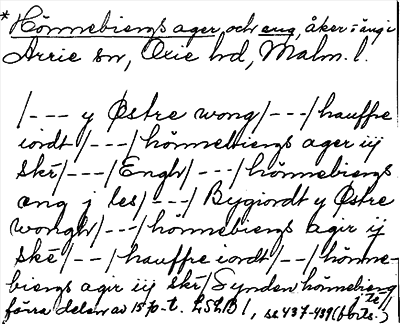 *Hönnebiergs ager och eng, åker i äng i
Arrie sn, Oxie hd, Malm. l.
/--- y Østre wong/---/hauffre
iordt/---/hönnebiergs ager iij
skr/---/Engh/---/hönnebiergs
eng j les/---/Bygiordt y Østre
wongh/---/hönnebiergs agir ij
skē/--/hauffre iordt/--/hönne-
biergs agir iij skr/Synden hönnebierg
förra delen av 1570-t. LSLB1, se 437-439 (forts.)